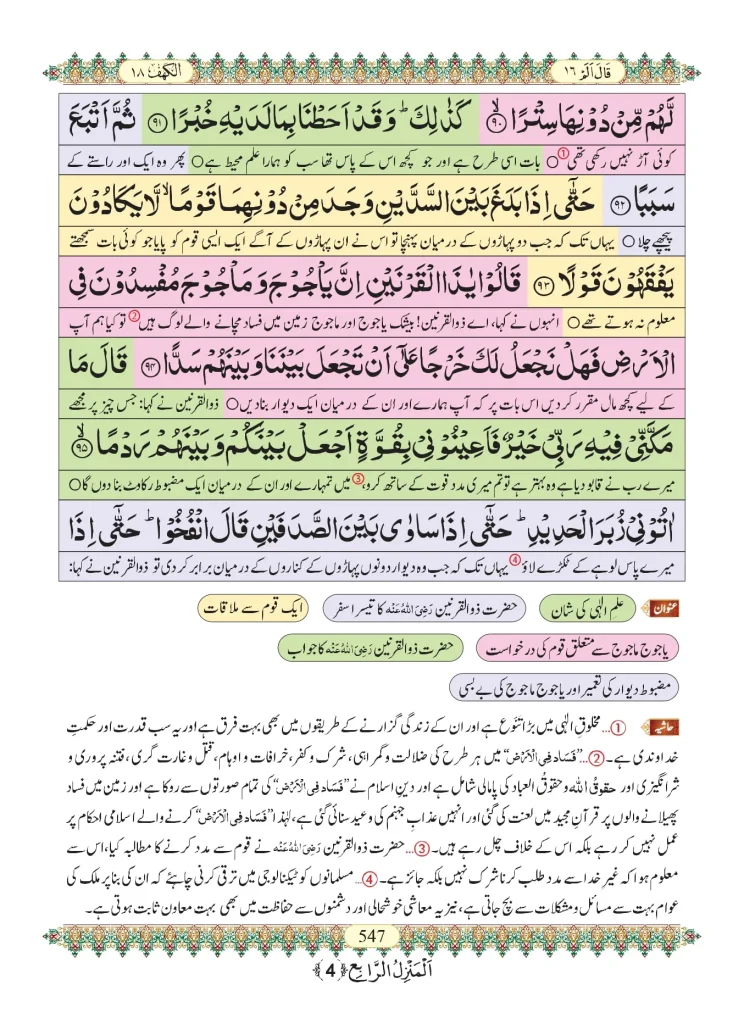 قَالَ اَلَمْ ١٦
الکھف ١٨
لَّهُمْ مِّنْ دُوْنِهَا سِتْرًا ﴿۹۰﴾ كَذٰلِكَ ؕ وَ قَدْ اَحَطْنَا بِمَا لَدَیْهِ خُبْرًا ﴿۹۱﴾ ثُمَّ اَتْبَعَ
کوئی آڑ نہیں رکھی تھی① ○ بات اسی طرح ہے اور جو کچھ اس کے پاس تھا سب کو ہمارا علم محیط ہے ○ پھر وہ ایک اور راستے کے
سَبَبًا ﴿۹۲﴾ حَتّٰۤی اِذَا بَلَغَ بَیْنَ السَّدَّیْنِ وَجَدَ مِنْ دُوْنِهِمَا قَوْمًا ۙ لَّا یَكَادُوْنَ
پیچھے چلا ○ یہاں تک کہ جب دو پہاڑوں کے درمیان پہنچا تو اس نے ان پہاڑوں کے آگے ایک ایسی قوم کو پایا جو کوئی بات سمجھتے
یَفْقَهُوْنَ قَوْلًا ﴿۹۳﴾ قَالُوْا یٰذَا الْقَرْنَیْنِ اِنَّ یَاْجُوْجَ وَ مَاْجُوْجَ مُفْسِدُوْنَ فِی
معلوم نہ ہوتے تھے ○ انہوں نے کہا، اے ذوالقرنین! بیشک یاجوج اور ماجوج زمین میں فساد مچانے والے لوگ ہیں② تو کیا ہم آپ
الْاَرْضِ فَهَلْ نَجْعَلُ لَكَ خَرْجًا عَلٰۤی اَنْ تَجْعَلَ بَیْنَنَا وَ بَیْنَهُمْ سَدًّا ﴿۹۴﴾ قَالَ مَا
کے لیے کچھ مال مقرر کر دیں اس بات پر کہ آپ ہمارے اور ان کے درمیان ایک دیوار بنا دیں ○ ذوالقرنین نے کہا: جس چیز پر مجھے
مَكَّنِّیْ فِیْهِ رَبِّیْ خَیْرٌ فَاَعِیْنُوْنِیْ بِقُوَّةٍ اَجْعَلْ بَیْنَكُمْ وَ بَیْنَهُمْ رَدْمًا ﴿۹۵﴾
میرے رب نے قابو دیا ہے وہ بہتر ہے تو تم میری مدد قوت کے ساتھ کرو،③ میں تمہارے اور ان کے درمیان ایک مضبوط رکاوٹ بنا دوں گا ○
اٰتُوْنِیْ زُبَرَ الْحَدِیْدِ ؕ حَتّٰۤی اِذَا سَاوٰی بَیْنَ الصَّدَفَیْنِ قَالَ انْفُخُوْا ؕ حَتّٰۤی اِذَا
میرے پاس لوہے کے ٹکڑے لاؤ④ یہاں تک کہ جب وہ دیوار دونوں پہاڑوں کے کناروں کے درمیان برابر کر دی تو ذوالقرنین نے کہا:
عنوان علمِ الٰہی کی شان حضرت ذوالقرنین رَضِیَ اللہُ عَنْہ کا تیسرا سفر ایک قوم سے ملاقات
یاجوج ماجوج سے متعلق قوم کی درخواست حضرت ذوالقرنین رَضِیَ اللہُ عَنْہ کا جواب
مضبوط دیوار کی تعمیر اور یاجوج ماجوج کی بے بسی
حاشیہ ①... مخلوقِ الٰہی میں بڑا تنوع ہے اور ان کے زندگی گزارنے کے طریقوں میں بھی بہت فرق ہے اور یہ سب قدرت اور حکمتِ
خداوندی ہے۔ ②... ”فَسَاد فِی الْاَرْض“ میں ہر طرح کی ضلالت و گمراہی، شرک و کفر، خرافات و اوہام، قتل و غارت گری، فتنہ پروری و
شرانگیزی اور حقوقُ اللہ و حقوقُ العباد کی پامالی شامل ہے اور دینِ اسلام نے ”فَسَاد فِی الْاَرْض“ کی تمام صورتوں سے روکا ہے اور زمین میں فساد
پھیلانے والوں پر قرآنِ مجید میں لعنت کی گئی اور انہیں عذابِ جہنم کی وعید سنائی گئی ہے، لہٰذا ”فَسَاد فِی الْاَرْض“ کرنے والے اسلامی احکام پر
عمل نہیں کر رہے بلکہ اس کے خلاف چل رہے ہیں۔ ③... حضرت ذوالقرنین رَضِیَ اللہُ عَنْہ نے قوم سے مدد کرنے کا مطالبہ کیا، اس سے
معلوم ہوا کہ غیرِ خدا سے مدد طلب کرنا شرک نہیں بلکہ جائز ہے۔ ④... مسلمانوں کو ٹیکنالوجی میں ترقی کرنی چاہئے کہ ان کی بنا پر ملک کی
عوام بہت سے مسائل و مشکلات سے بچ جاتی ہے، نیز یہ معاشی خوشحالی اور دشمنوں سے حفاظت میں بھی بہت معاون ثابت ہوتی ہے۔
547
اَلْمَنْزِلُ الرَّابِعُ ﴿4﴾